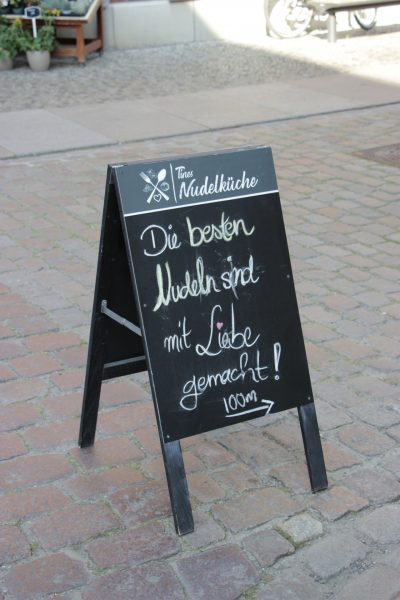 Tines
Nudelküche
Die besten
Nudeln sind
mit Liebe
gemacht!
100m